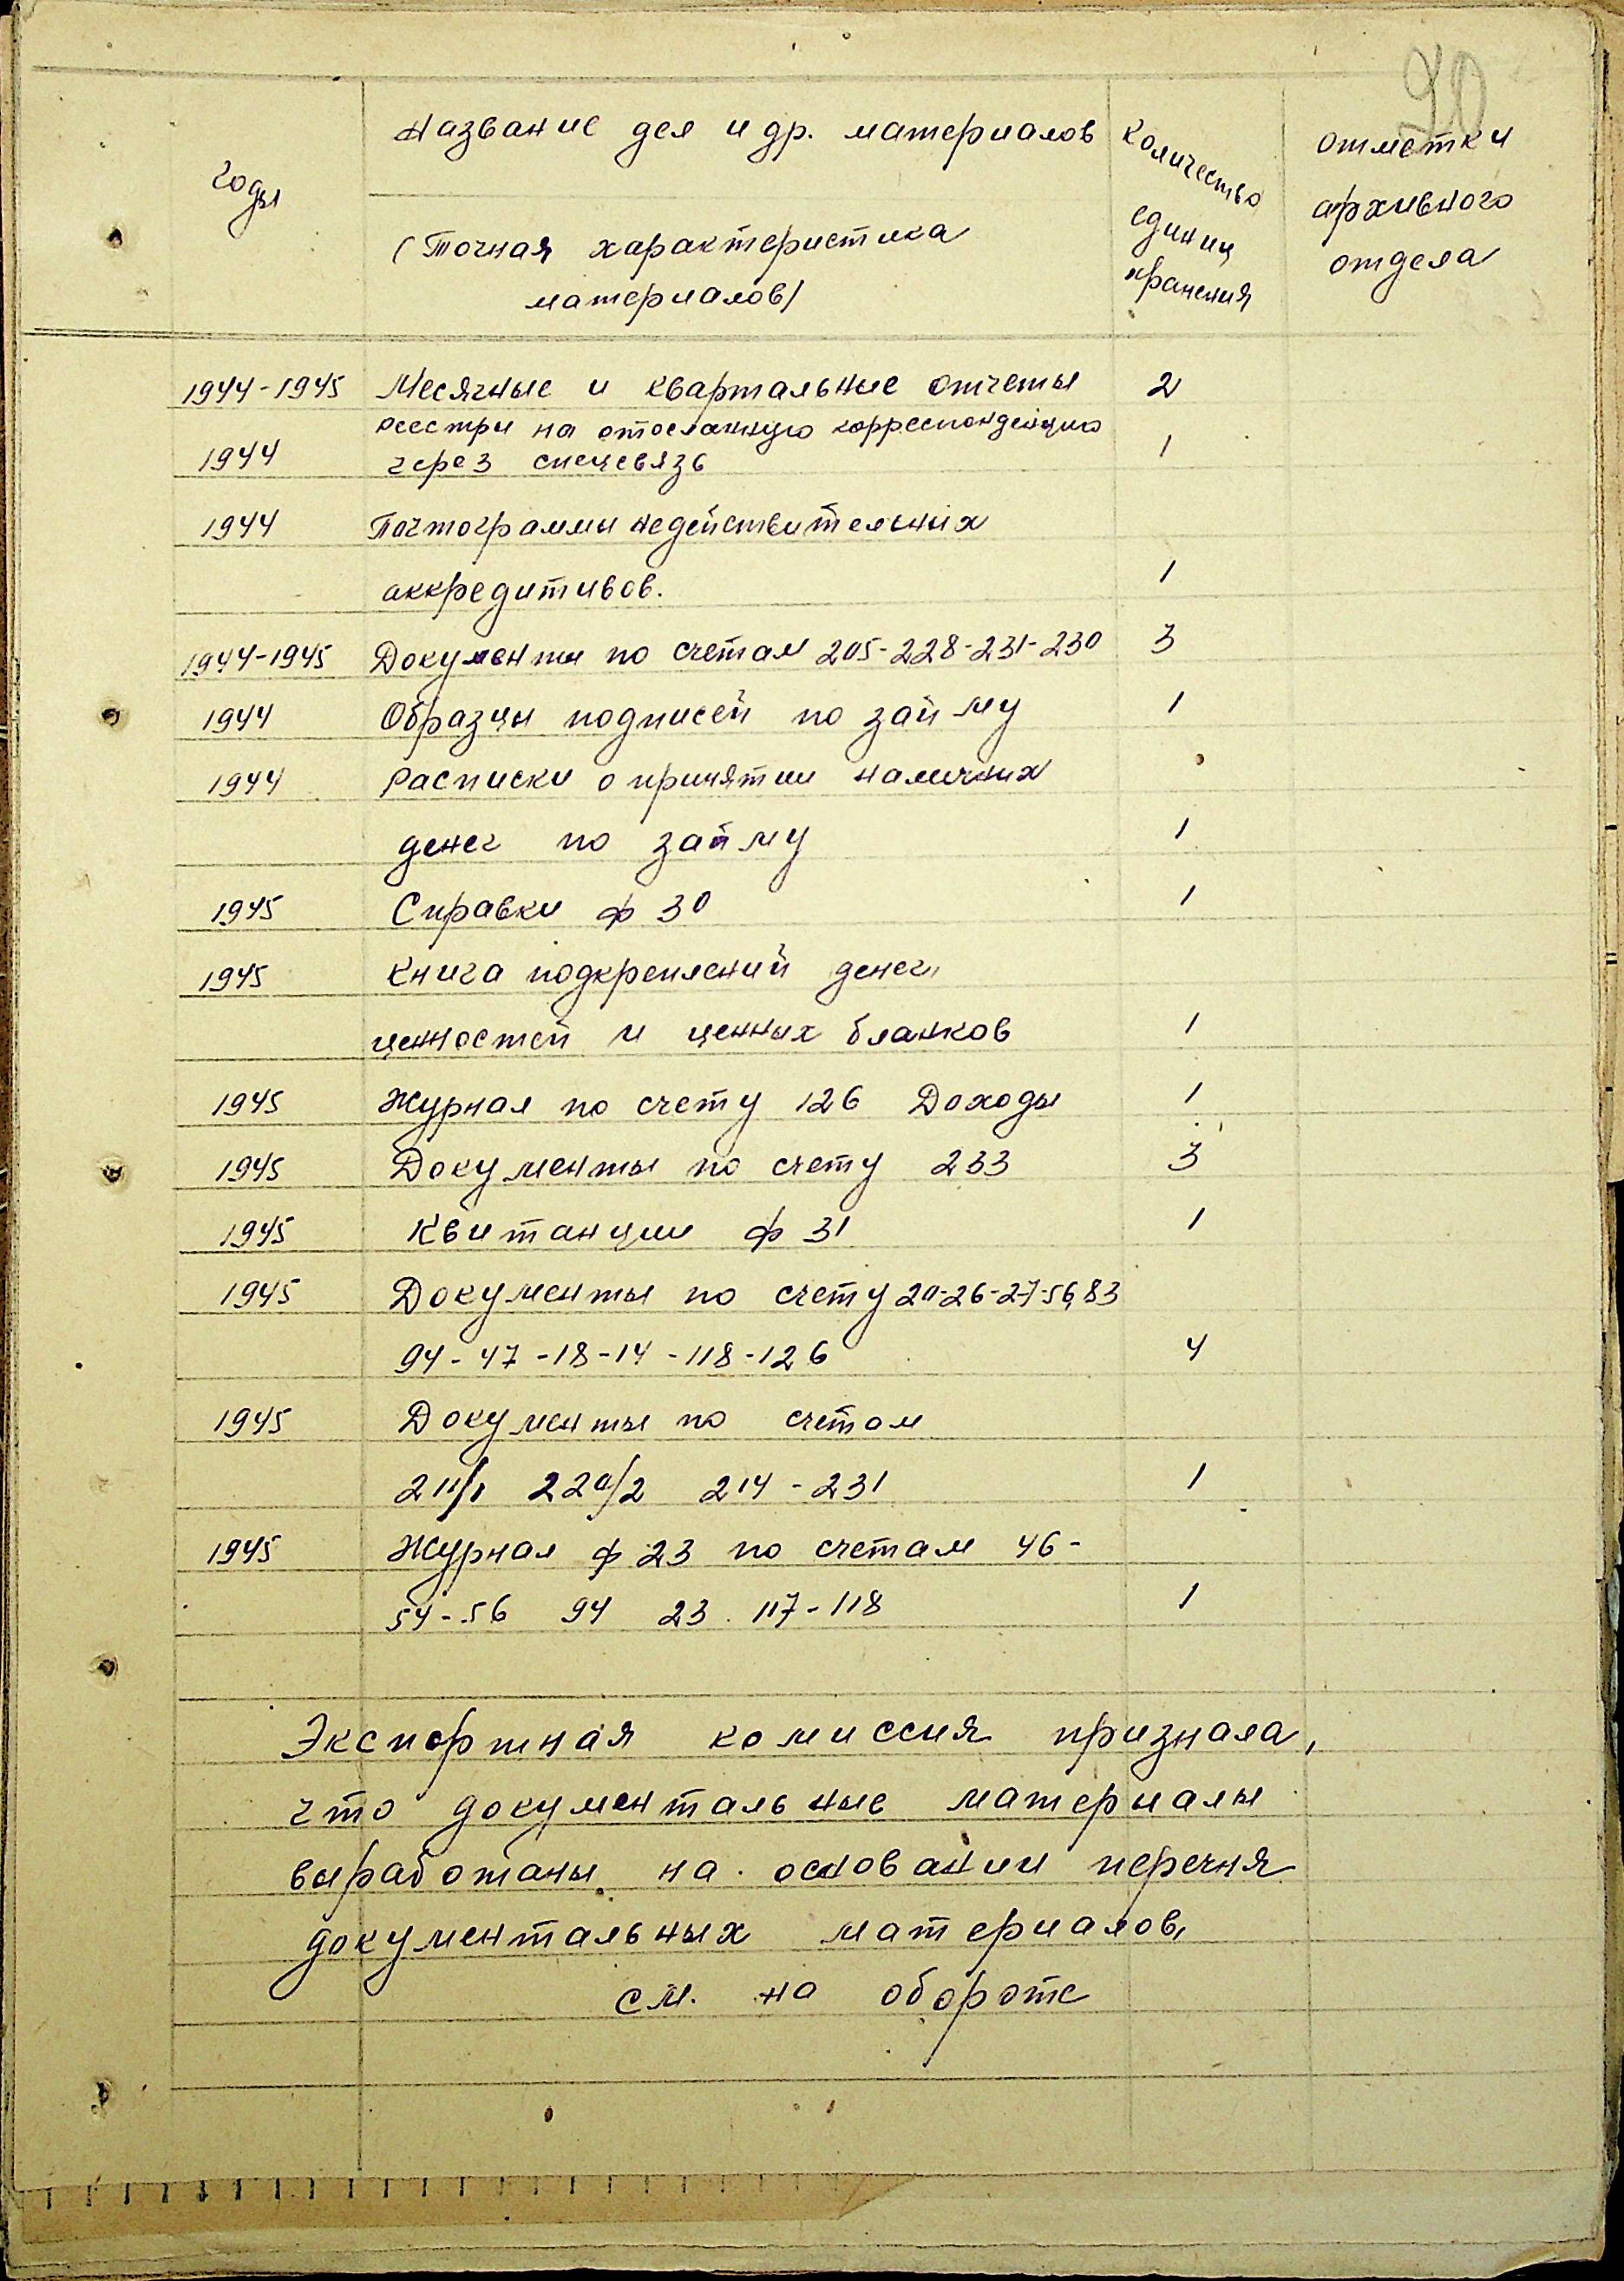 90
Годы
Название дел и др. материалов
(Точная характеристика
материалов)
Количество
единиц
хранения
отметки
архивного
отдела
1944-1945 Месячные и квартальные отчеты 2
реестры на отосланную корреспонденцию
1944 через спецсвязь 1
1944 Почтограммы недействительных
аккредитивов. 1
1944-1945 Документы по счетам 205-228-231-230 3
1944 Образцы подписей по займу 1
1944 Расписки о принятии наличных
денег по займу 1
1945 Справки ф 30 1
1945 Книга подкреплений денег,
ценностей и ценных бланков 1
1945 Журнал по счету 126 Доходы 1
1945 Документы по счету 233 3
1945 Квитанции ф 31 1
1945 Документы по счету 20-26-27-56,83
94-47-18-14-118-126 4
1945 Документы по счетам
211/1 220/2 214-231 1
1945 Журнал ф 23 по счетам 46-
54-56 94 23 117-118 1
Экспортная комиссия признала,
что документальные материалы
выработаны на основании перечня
документальных материалов,
см. на обороте